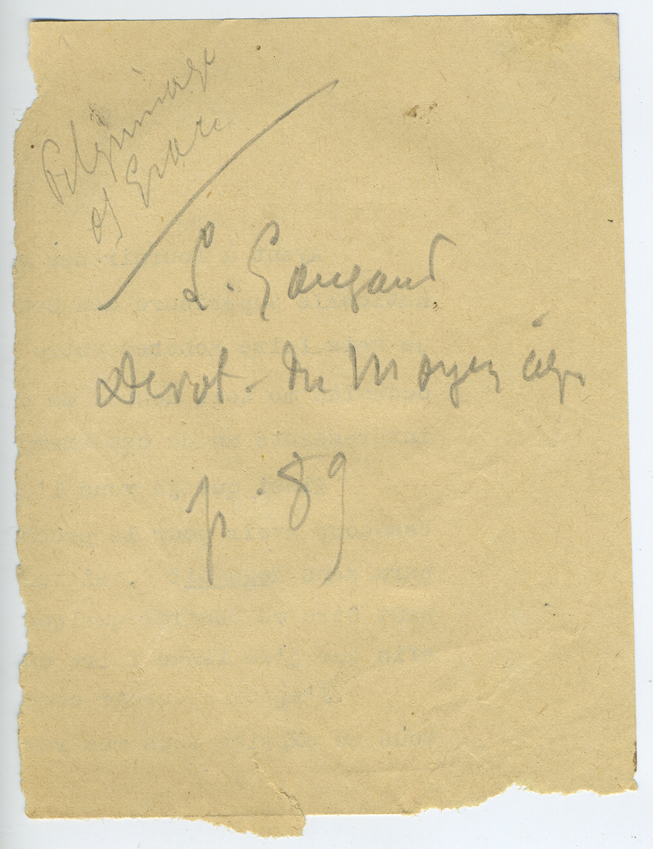 Pilgrimage
of Grace
L. Gougaud
Devot. du Moyen âge
p. 89